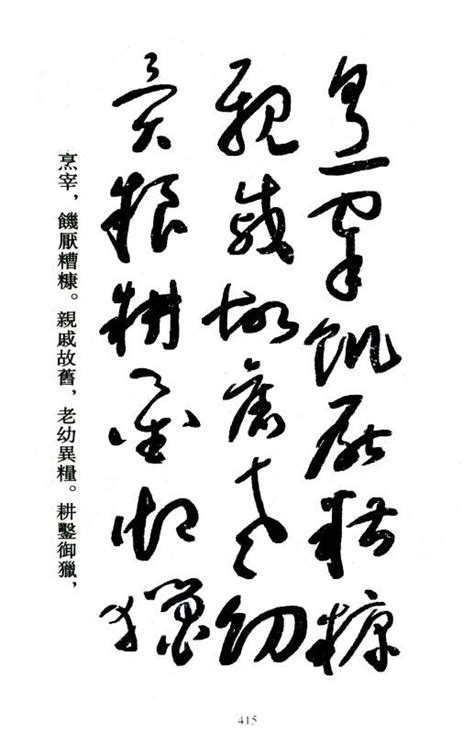 烹宰飢厭糟糠
親戚故舊老幼
異糧耕鑿御獵
烹宰，饑厭糟糠。親戚故舊，老幼異糧。耕鑿御獵，
415